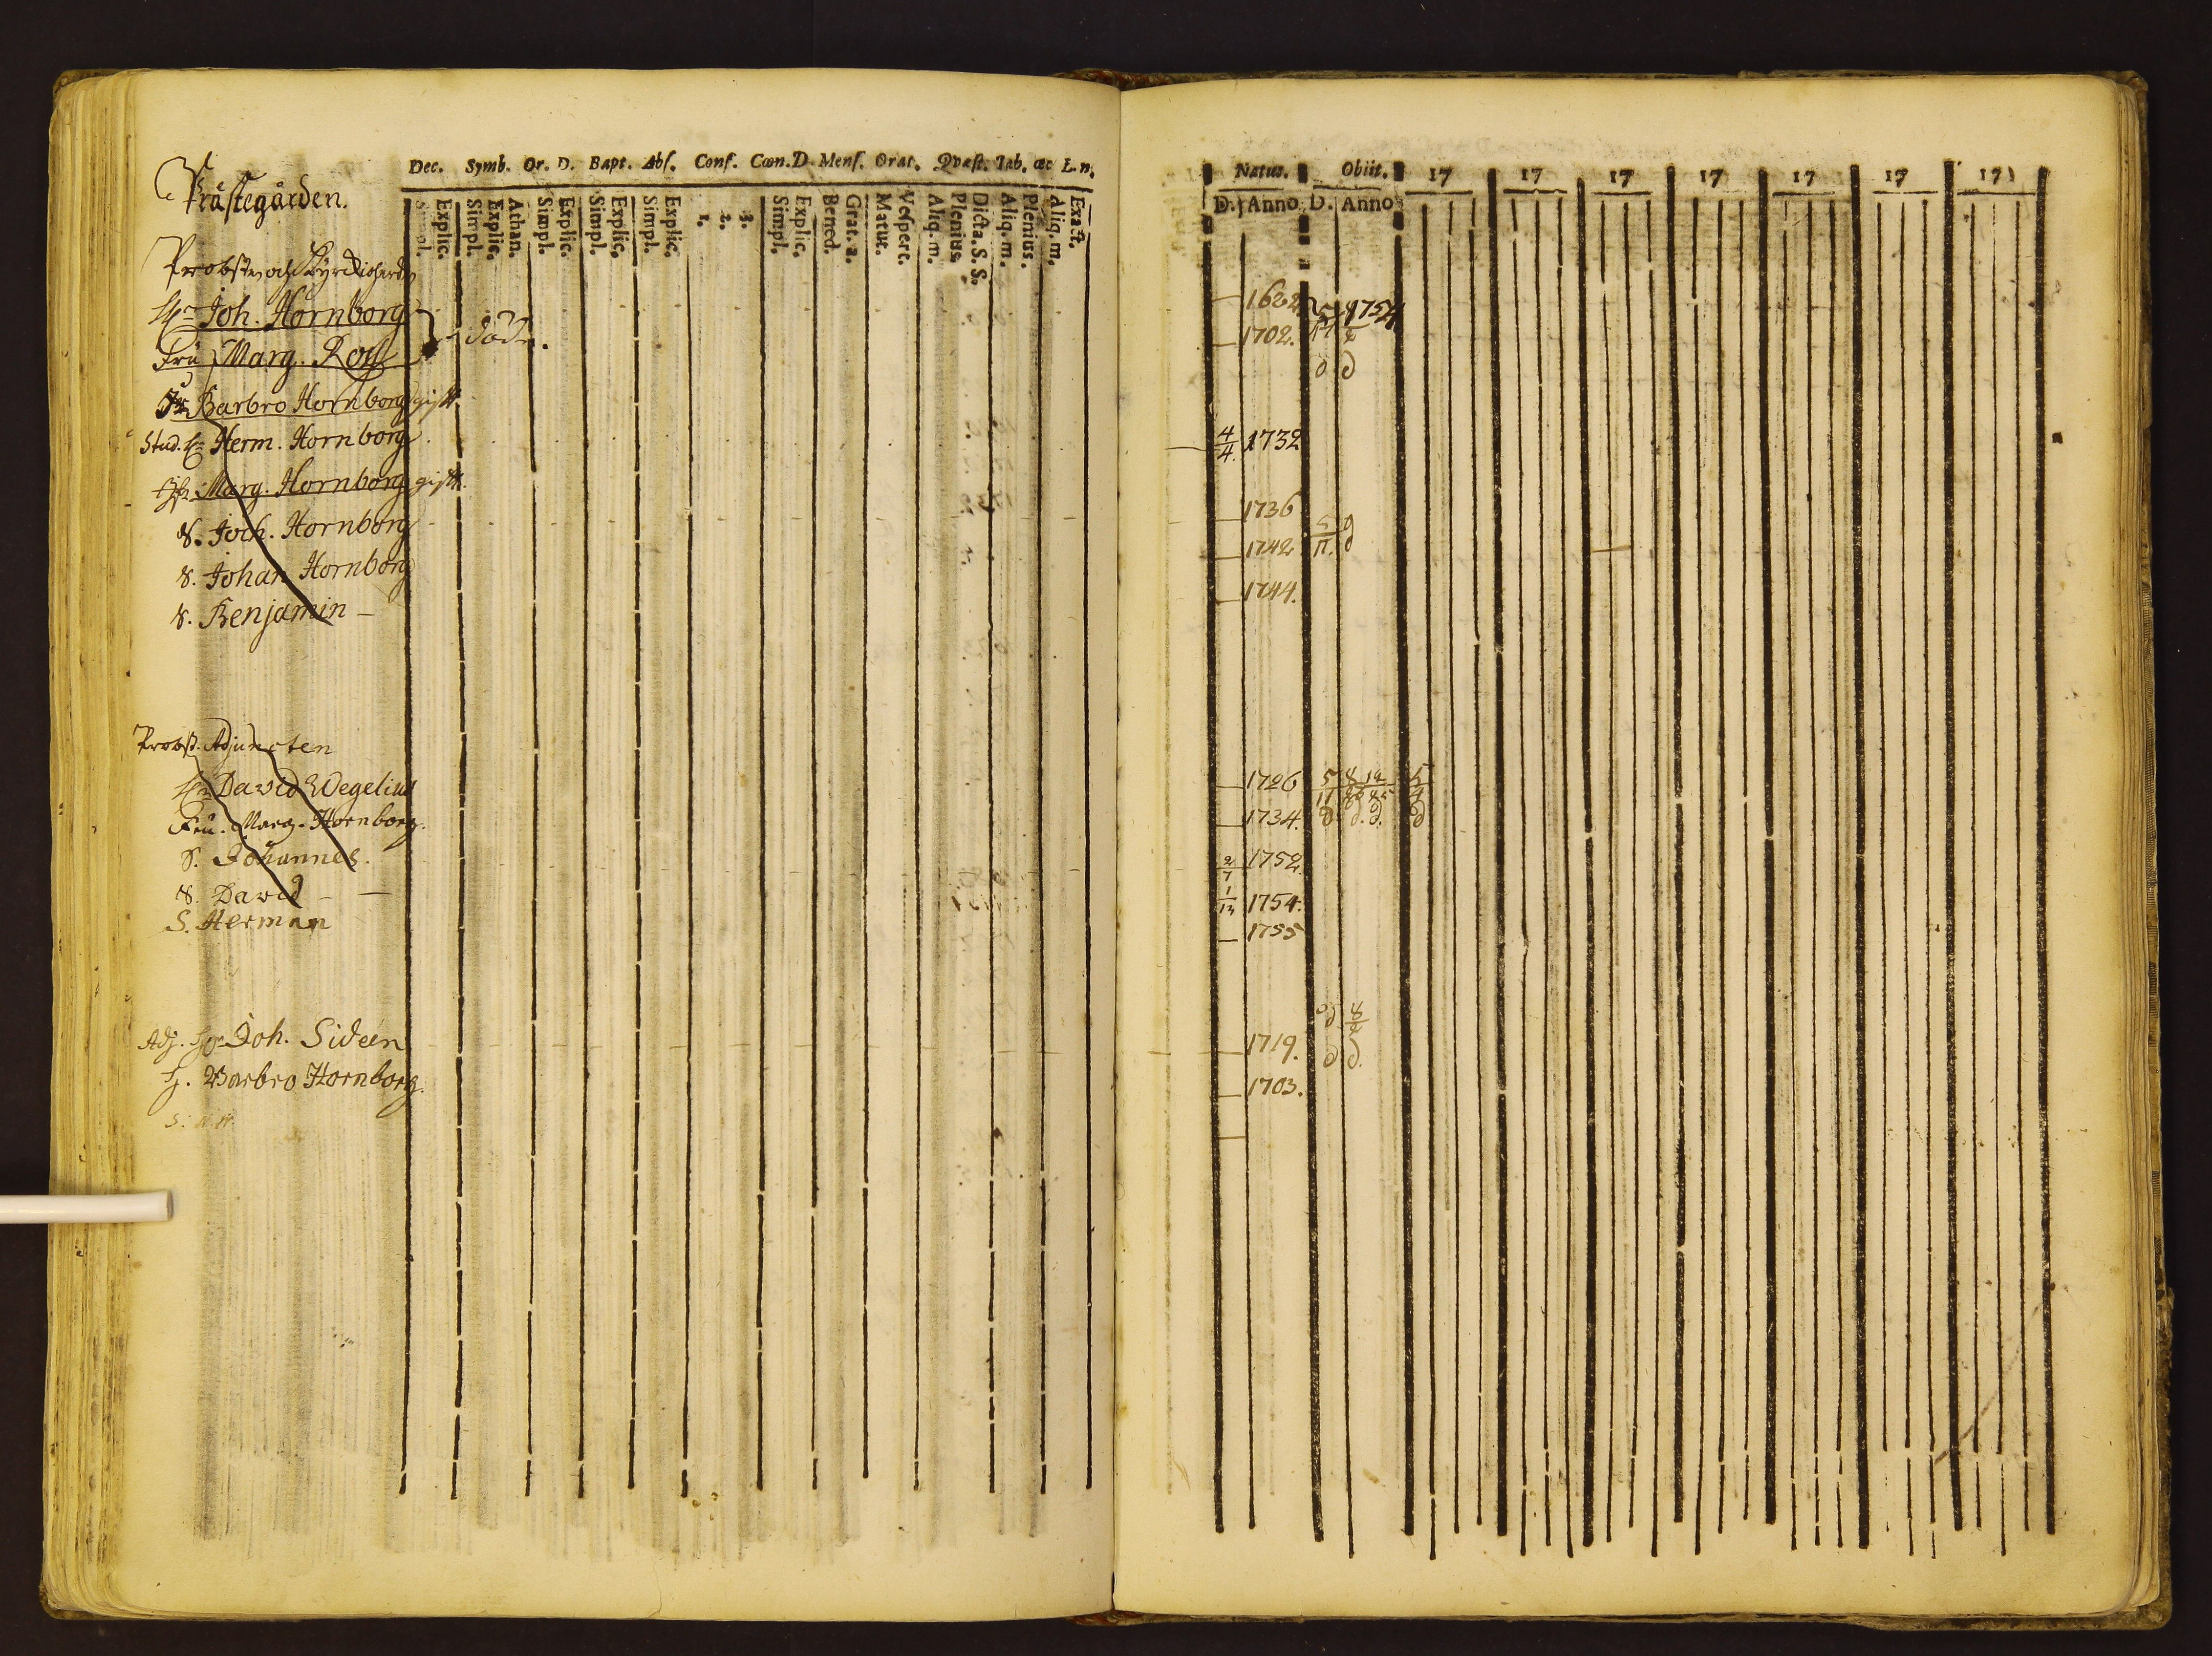 Dec. Symb. Or. D. Bapt. Abs. Conf. Cœn. D. Mens. Orat. Qvæst. Tab. œc L. n.
Simpl. Explic. Simpl. Explic. Athan. Simpl. Explic. Simpl. Explic. Simpl. Explic. 1. 2. 3. Simpl. Explic. Bened. Grat. a. Matut. Vespert. Aliq. m. Plenius. Dicta. S. S. Aliq. m. Plenius. Aliq. m. Exact.
Prästegården.
Probsten och Kyrckioherden
Hr Joh. Hornborg
Fru Marg. Ross död.
Barbro Hornborg gift.
Stud. Hr Herm. Hornborg
Jfr Marg. Hornborg gift.
S. Joch. Hornborg
S. Johan Hornborg
S. Benjamin –
Probst. Adjuncten
Hr David Wegelius
Fru. Marg. Hornborg.
S. Johannes.
S. David – —
S. Herman
Adj. Hr Joh. Sideen
H. Barbro Hornborg.
S. N. N.
Natus. Obiit. 17 17 17 17 17 17 17
D. Anno D. Anno
1754
— 1702.
d d
4/4 1732
— 1736
— 1742 5/11. d
— 1744.
— 1726 5/11
— 1734. d. d. d. d
2/7 1752
1/12 1754.
— 1755
— 1719. d d.
— 1703.
—